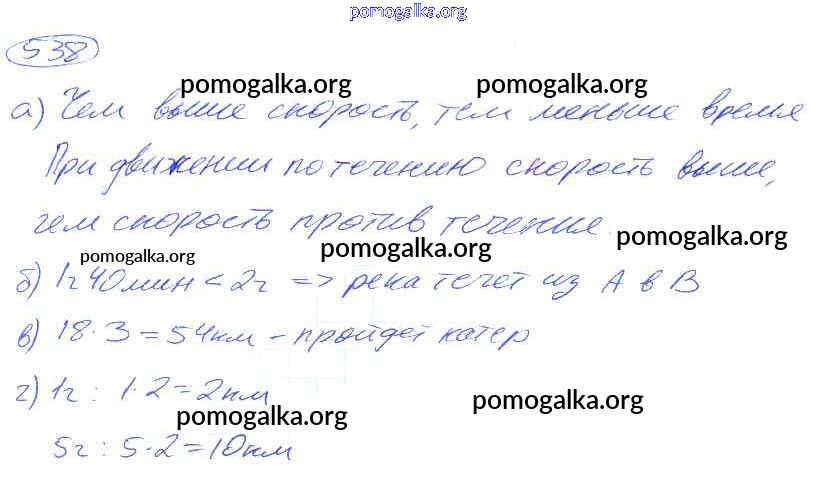 pomogalka.org
538
pomogalka.org pomogalka.org
а) Чем выше скорость, тем меньше время
При движении по течению скорость выше,
чем скорость против течения.
pomogalka.org pomogalka.org pomogalka.org
б) 1ч 40мин < 2ч => река течет из А в В
в) 18·3 = 54км – пройдет катер
г) 1ч : 1·2 = 2км
pomogalka.org pomogalka.org
5ч : 5·2 = 10км